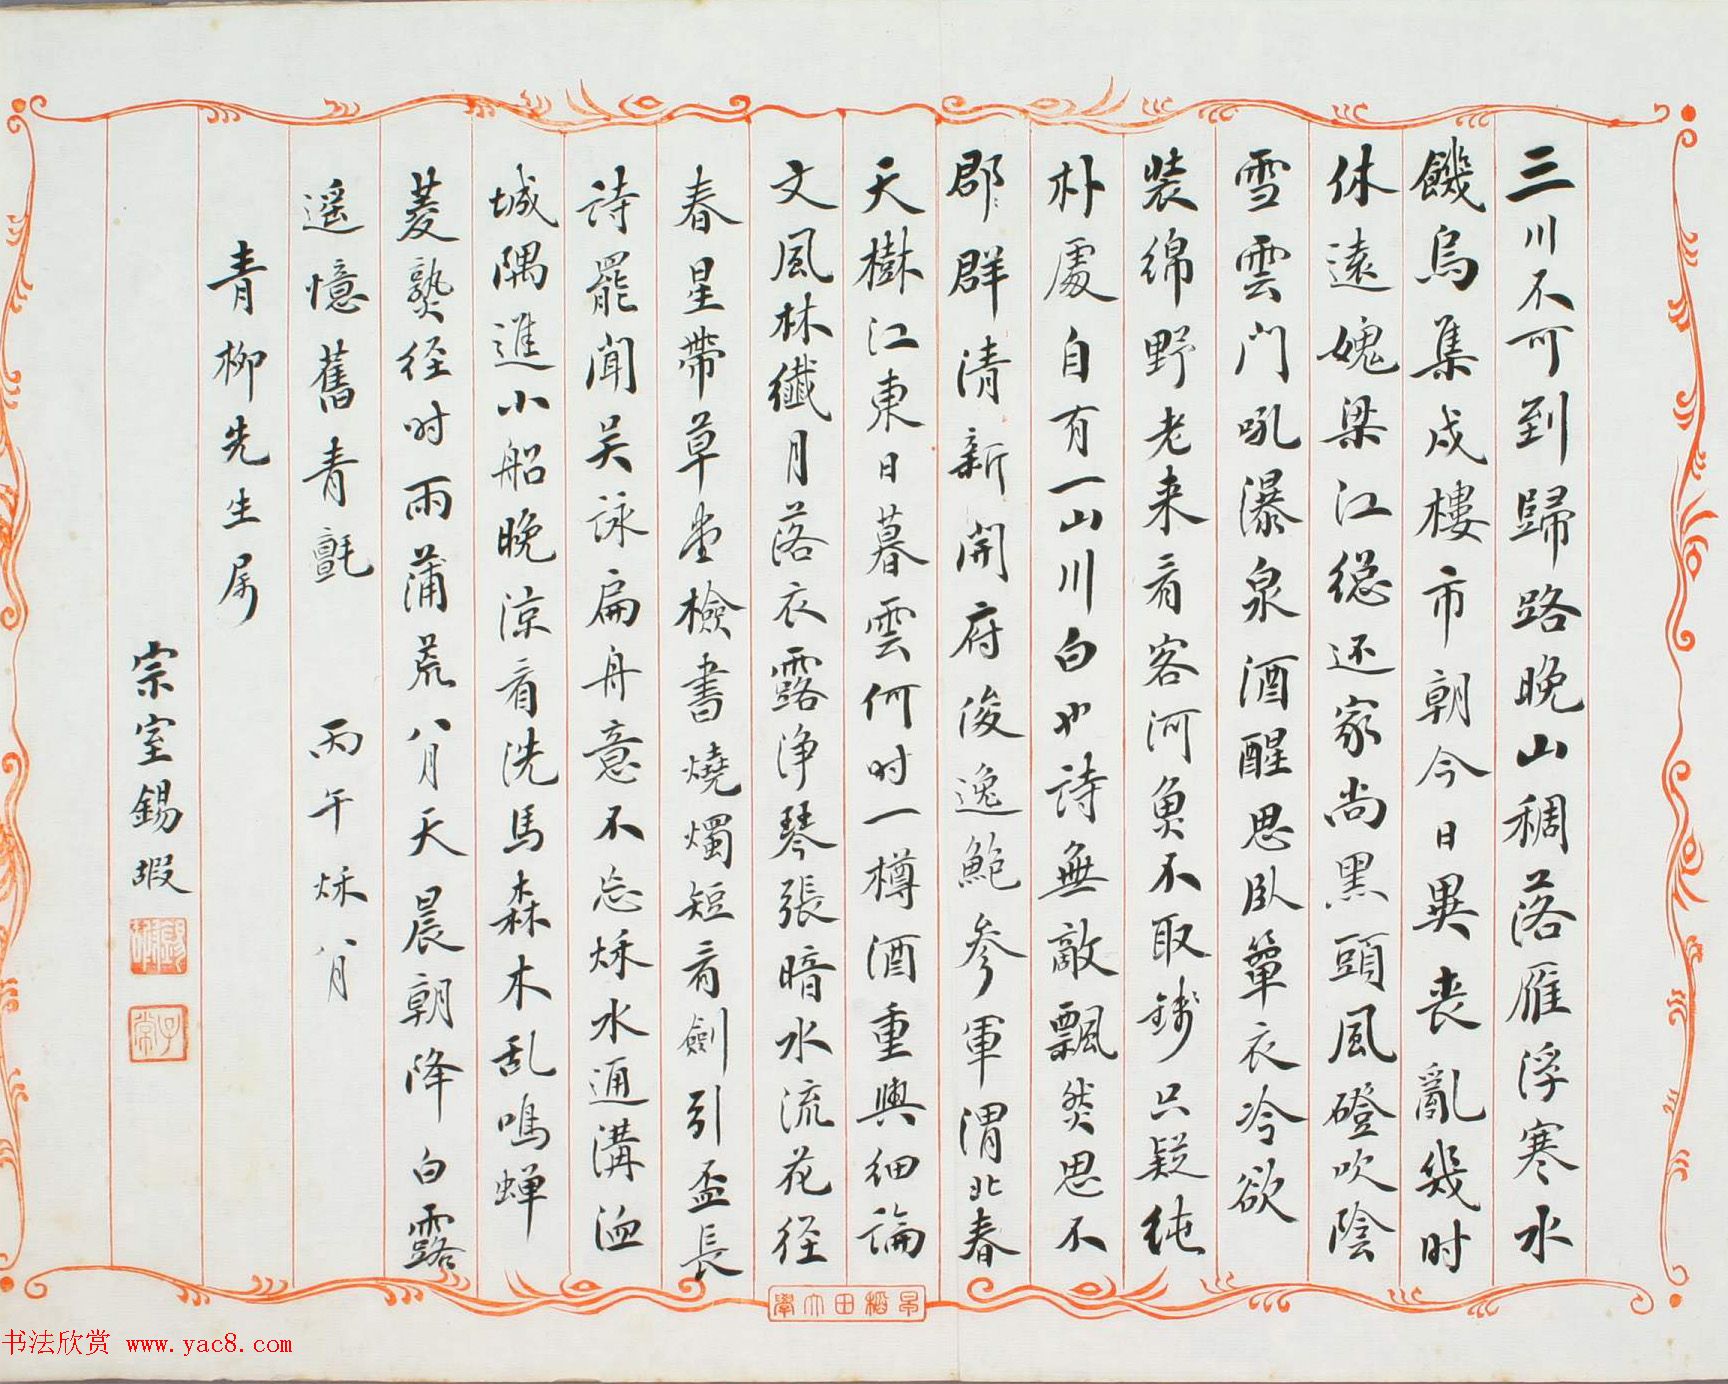 三川不可到歸路晚山稠落雁浮寒水
饑烏集戍樓市朝今日異喪亂幾时
休遠媿梁江總还家尚黑頭風磴吹陰
雪雲門吼瀑泉酒醒思臥簟衣冷欲
裝綿野老来看客河魚不取錢只疑純
朴處自有一山川白也詩無敵飄然思不
郡群清新開府俊逸鮑參軍渭北春
天樹江東日暮雲何时一樽酒重與細論
文風林纖月落衣露浄琴張暗水流花径
春星帶草堂檢書燒燭短看劍引盃長
詩罷聞吴詠扁舟意不忘秌水通溝洫
城隅進小船晚涼看洗馬森木乱鳴蝉
菱熟经时雨蒲荒八月天晨朝降白露
遥憶舊青氈 丙午秌八月
青柳先生属
宗室錫嘏
錫嘏
子常
早稻田大學
书法欣赏 www.yac8.com